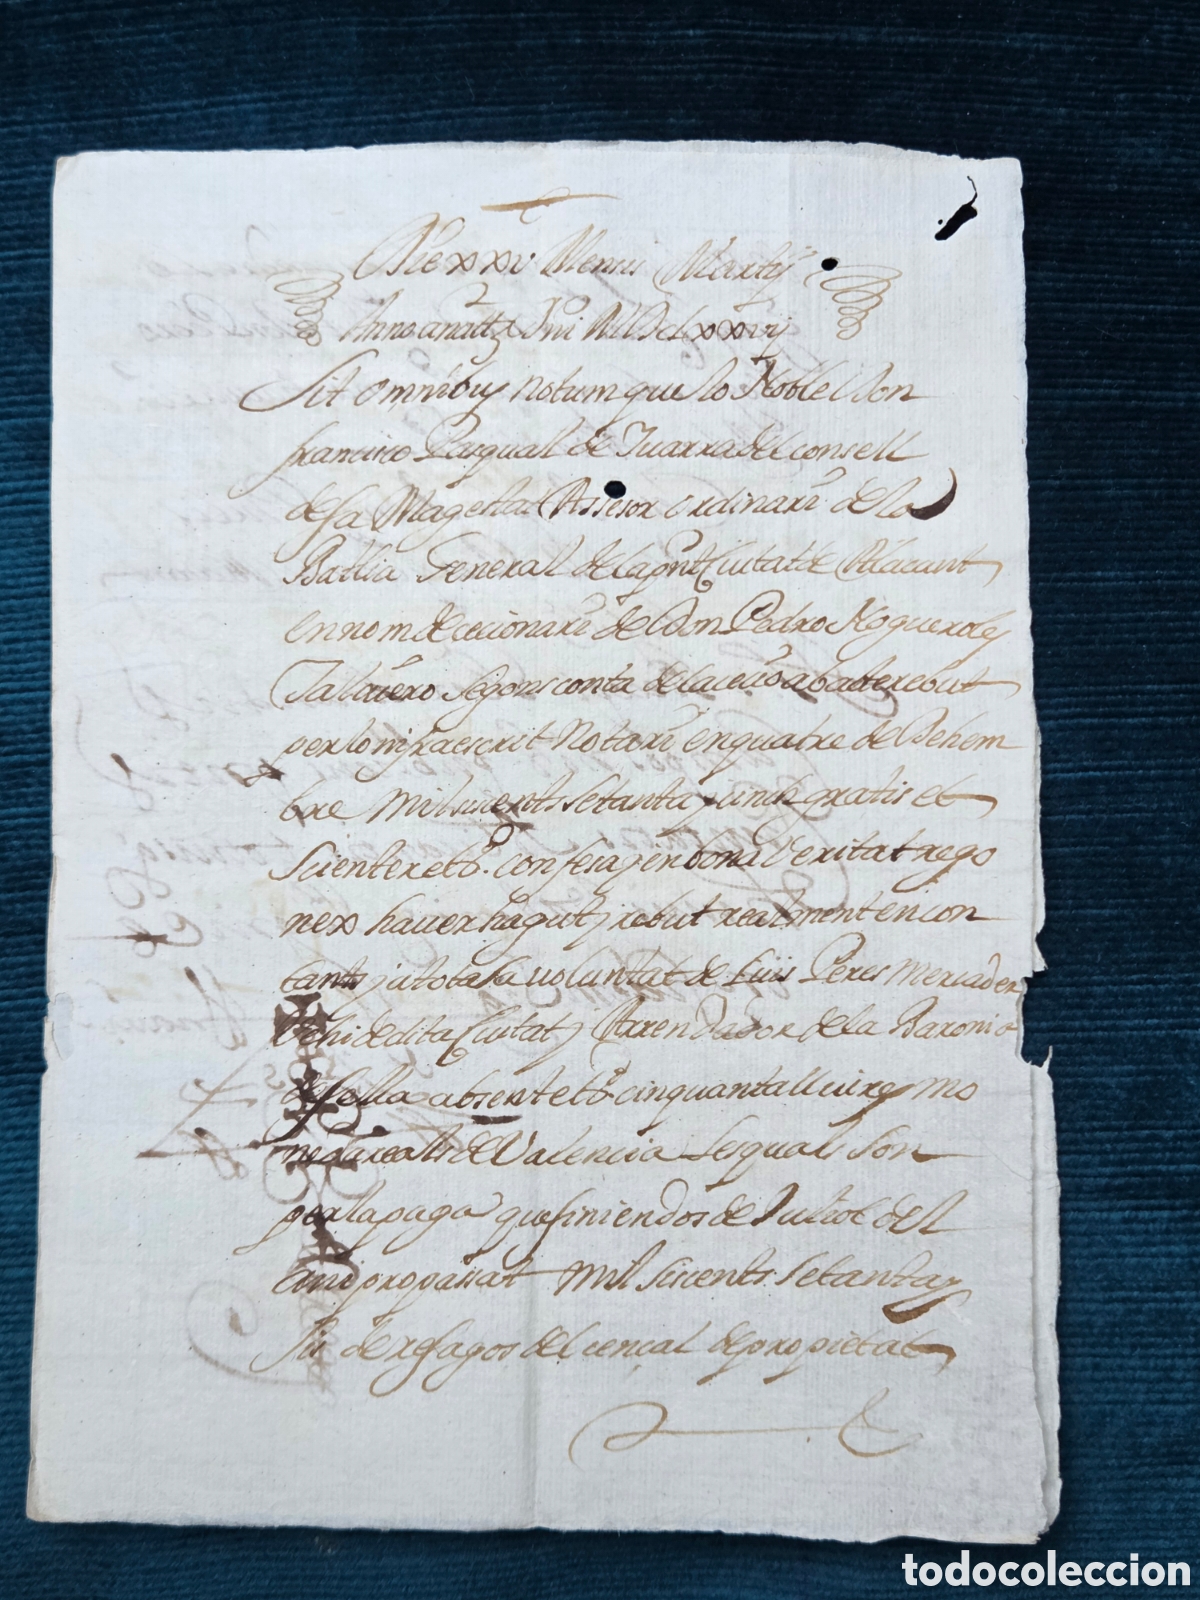 Die xxv Mensis Martij
Anno a natt.e Dni MDclxxvij
Sit omnibus notum que lo Noble Don
francisco Pasqual de Iuarra del consell
de sa Magestat Assesor ordinari de la
Batlia General de la pnt Ciutat de Alacant
en nom de cecionari de Don Pedro Nogueroles
Talauero segons conta de la cecio abad e rebut
per lo infraescrit Notari en quatre de Dehem
bre mil sicents setanta y sinch gratis et
scienter etc. confesa y en bona veritat rego
nex hauer hagut y rebut realment en con
tants y a tota sa voluntat de Luis Peres Mercader
vehi de dita Ciutat y Arrendador de la Baronia
de sella absent etc. cinquanta lliures mo
neda reals de Valencia les quals son
per la paga que finie en dos de Juliol del
any propassat mil sicents setanta y
sis de re fagos del cençal de propietat
todocoleccion